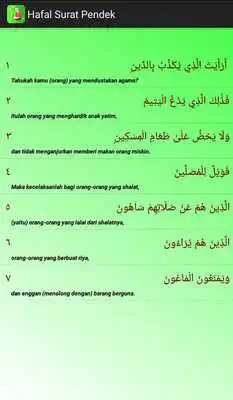 Hafal Surat Pendek
١ أَرَأَيْتَ الَّذِي يُكَذِّبُ بِالدِّينِ
Tahukah kamu (orang) yang mendustakan agama?
٢ فَذَٰلِكَ الَّذِي يَدُعُّ الْيَتِيمَ
Itulah orang yang menghardik anak yatim,
٣ وَلَا يَحُضُّ عَلَىٰ طَعَامِ الْمِسْكِينِ
dan tidak menganjurkan memberi makan orang miskin.
٤ فَوَيْلٌ لِلْمُصَلِّينَ
Maka kecelakaanlah bagi orang-orang yang shalat,
٥ الَّذِينَ هُمْ عَنْ صَلَاتِهِمْ سَاهُونَ
(yaitu) orang-orang yang lalai dari shalatnya,
٦ الَّذِينَ هُمْ يُرَاءُونَ
orang-orang yang berbuat riya,
٧ وَيَمْنَعُونَ الْمَاعُونَ
dan enggan (menolong dengan) barang berguna.